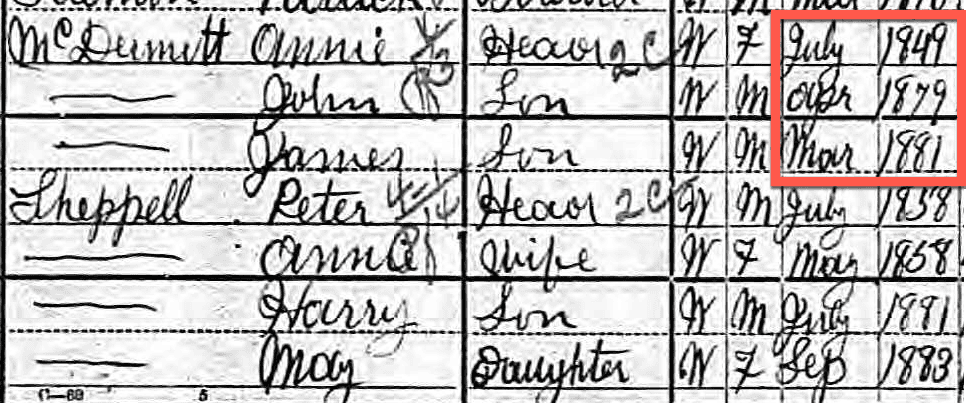 McDermitt Annie Head 2C W F July 1849
John Son W M Apr 1879
James Son W M Mar 1881
Sheppell Peter Head 2C W M July 1858
Annie Wife W F May 1858
Harry Son W M July 1881
May Daughter W F Sep 1883